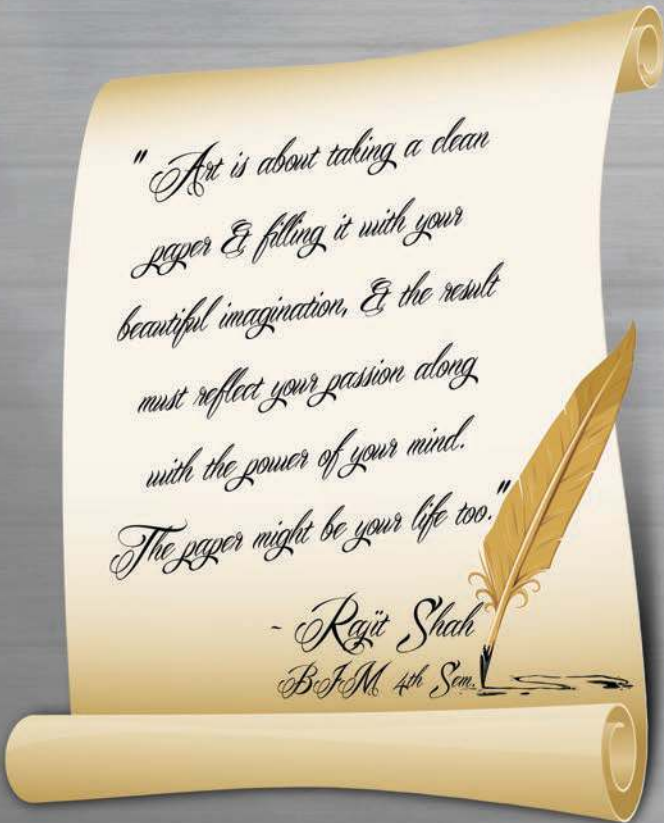 " Art is about taking a clean
paper & filling it with your
beautiful imagination, & the result
must reflect your passion along
with the power of your mind.
The paper might be your life too."
- Rajit Shah
BIM 4th Sem.